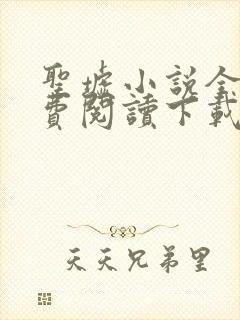 聖墟小說全
費閱讀下載
天天兄弟里